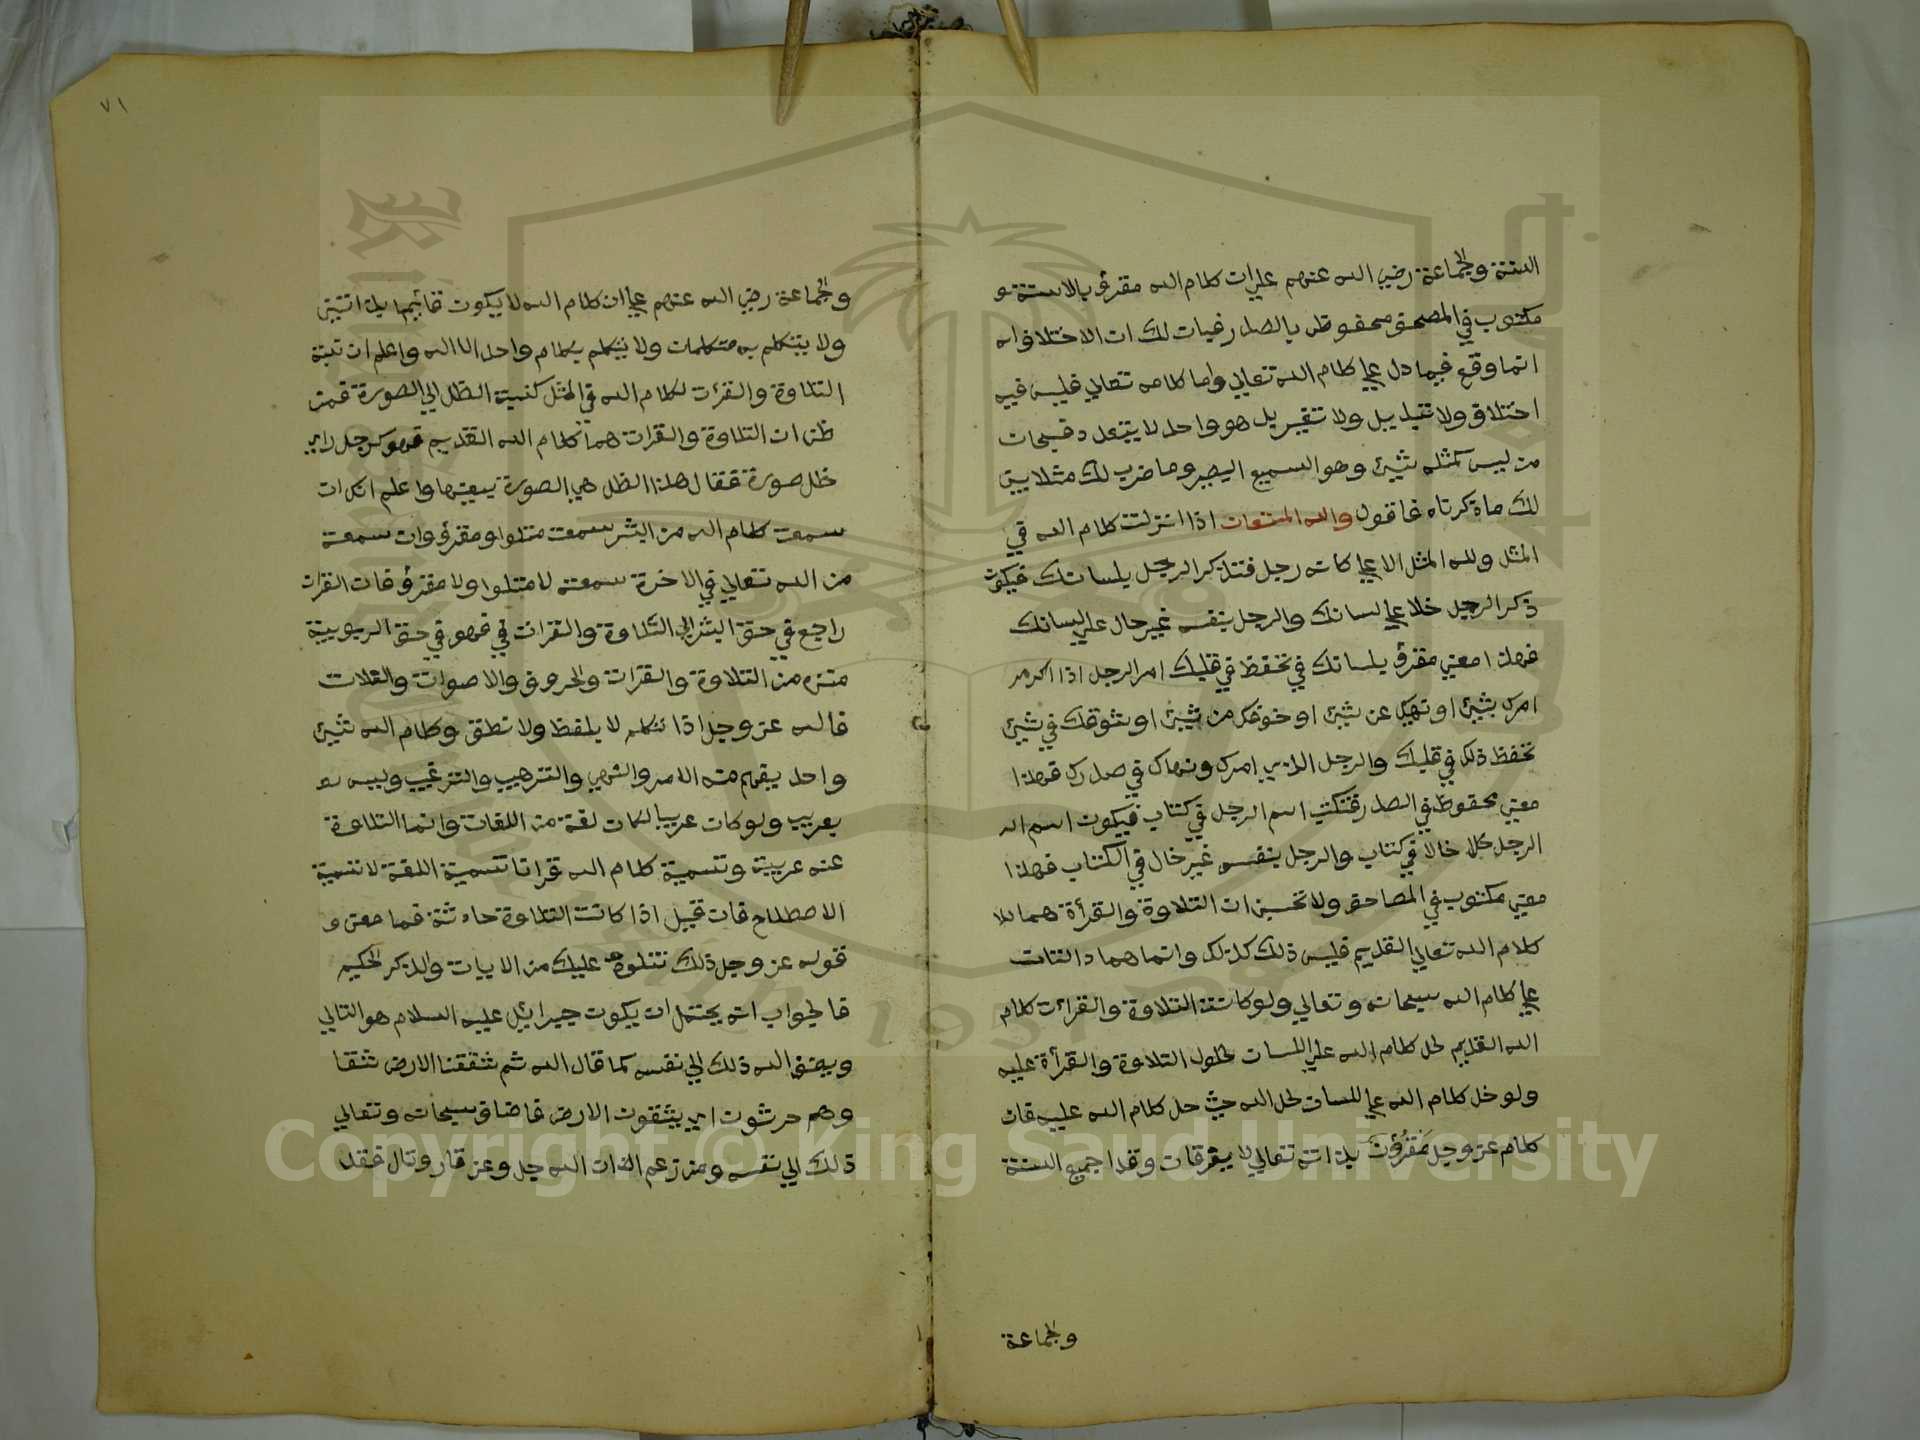 السنة والجماعة رضي الله عنهم علي ان كلام الله مقرؤ بالالسنة و
مكتوب في المصحف محفوظ بالصدر فبان لك ان الاختلاف انه
انما وقع فيما دل علي كلام الله تعالي واما كلامه تعالي فليس فيه
اختلاف ولا تبديل ولا تغيير بل هو واحد لا يتعدد فسبحان
من ليس كمثله شيئ وهو السميع البصير وها ضرب لك مثلا يبين
لك ما ذكرناه فاقول والله المستعان اذا انزلت كلام الله في
المثل ولله المثل الاعلي كانه رجل فتذكر الرجل بلسانك فيكون
ذكر الرجل خلا علي لسانك والرجل بنفسه غير حال علي لسانك
فهذا معني مقرؤ بلسانك في تحفظ في قلبك امر الرجل اذا اكرمر
امرك بشيئ او نهيك عن شيئ او خوفك من شيئ او شوقك في شيئ
تحفظ ذلك في قلبك والرجل الذي امرك ونهاك في صدرك فهذا
معني محفوظ في الصدر فتكتب اسم الرجل في كتاب فيكون اسم الر
الرجل كلا خالا في كتاب والرجل بنفسه غير خال في الكتاب فهذا
معني مكتوب في المصاحف ولا تحسبن ان التلاوة والقرأة هما للا
كلام الله تعالي القديم فليس ذلك كذلك وانما هما دالتان
علي كلام الله سبحانه وتعالي ولو كانتا التلاوة والقرأت كلام
الله القديم لحل كلام الله علي اللسان لحلول التلاوة والقرأة عليه
ولو حل كلام الله علي اللسان لحل الله حيث حل كلام الله عليه فان
كلام عز وجل مقرؤن بذاته تعالي لا يفرقان وقد اجمع السنة
والجماعة
٧١
والجماعة رضي الله عنهم علي ان كلام الله لا يكون قائما بذاتين
ولا يتكلم به متكلمان ولا يتكلم بكلام واحد الا الله واعلم ان نسبة
التلاوة والقرأت لكلام الله في المثل كنسبة الظل الي الصورة فمن
ظن ان التلاوة والقرات هما كلام الله القديم فهو كرجل راي
ظل صورة فقال هذا الظل هي الصورة بعينها واعلم انك ان
سمعت كلام الله من البشر سمعت متلوا ومقرؤ وان سمعته
من الله تعالي في الاخرة سمعته لا متلوا ولا مقرؤ فان القرات
راجع في حق البشر الي التلاوة والقرات في فهو في حق الربوبية
منزه من التلاوة والقرات والحروف والاصوات والالات
فالله عز وجل اذا تكلم لا يلفظ ولا نطق وكلام الله شيئ
واحد يفهم منه الامر والنهي والترهيب والترغيب وليس هو
بعربي ولو كان عربيا لكان لغة من اللغات وانما التلاوة
عنه عربية وتسمية كلام الله قرانا تسمية اللغة لا تسمية
الاصطلاح فان قيل اذا كانت التلاوة حادثة فما معني و
قوله عز وجل ذلك نتلوه عليك من الايات والذكر الحكيم
فالجواب انه يحتمل ان يكون جبرائيل عليه السلام هو التالي
ويضيف الله ذلك الي نفسه كما قال الله ثم شققنا الارض شقا
وهم حرثون اي يشقون الارض فاضاف سبحانه وتعالي
ذلك الي نفسه ومن زعم الذات الله جل وعز قار وتال فقد
Copyright © King Saud University